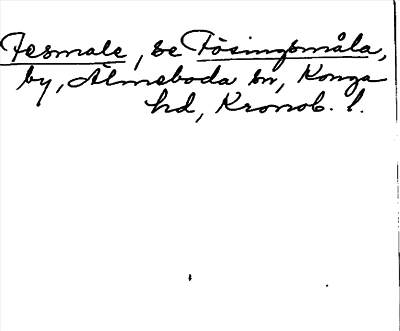 Fesmale, se Fösingsmåla,
by, Älmeboda sn, Konga
hd, Kronob. l.